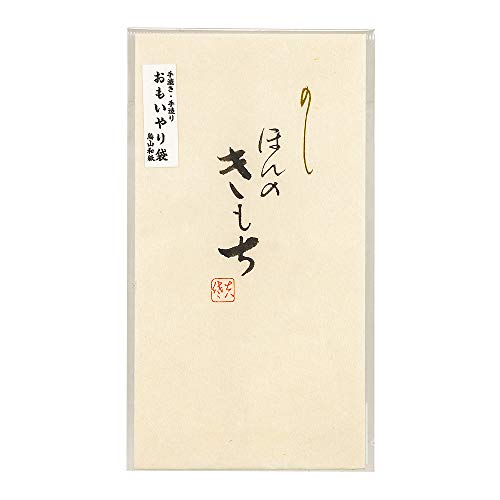 のし
ほんの
きもち
手漉き・手造り
おもいやり袋
烏山和紙